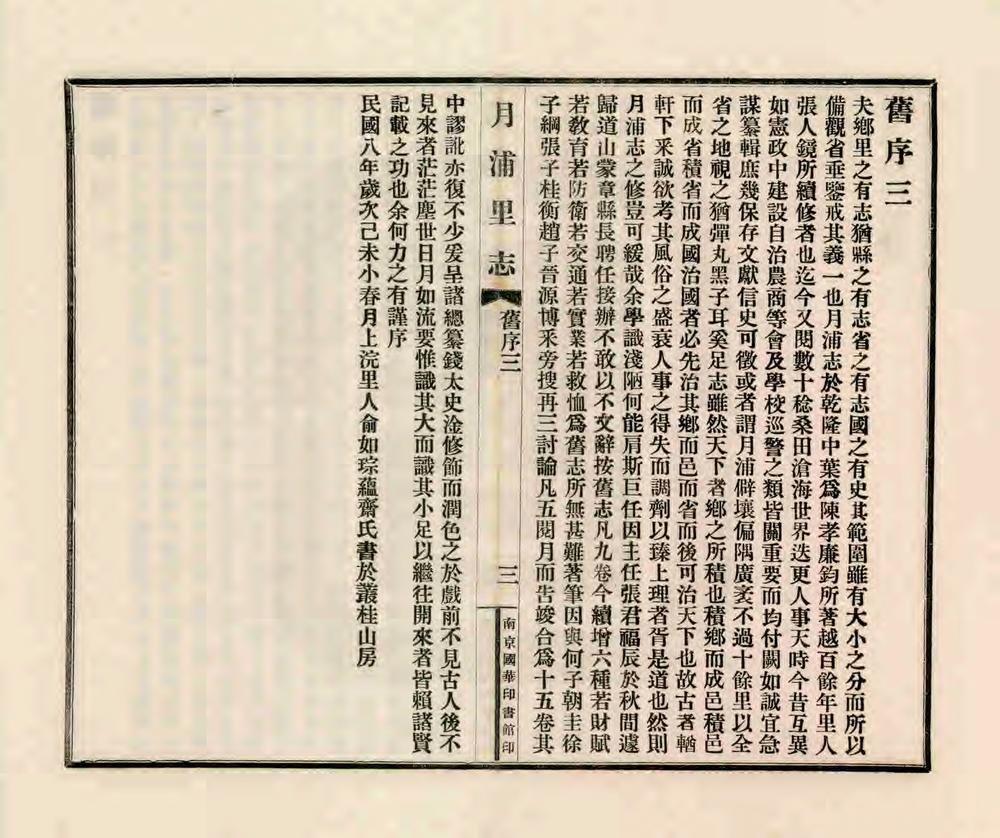 舊序三
夫鄉里之有志猶縣之有志省之有志國之有史其範圍雖有大小之分而所以
備觀省垂鑒戒其義一也月浦志於乾隆中葉爲陳孝廉鈞所著越百餘年里人
張人鏡所續修者也迄今又閱數十稔桑田滄海世界迭更人事天時今昔互異
如憲政中建設自治農商等會及學校巡警之類皆關重要而均付闕如誠宜急
謀纂輯庶幾保存文獻信史可徵或者謂月浦僻壤偏隅廣袤不過十餘里以全
省之地視之猶彈丸黑子耳奚足志雖然天下者鄉之所積也積鄉而成邑積邑
而成省積省而成國治國者必先治其鄉而邑而省而後可治天下也故古者輶
軒下釆誠欲考其風俗之盛衰人事之得失而調劑以臻上理者胥是道也然則
月浦志之修豈可緩哉余學識淺陋何能肩斯巨任因主任張君福辰於秋間遽
歸道山蒙章縣長聘任接辦不敢以不文辭按舊志凡九卷今續增六種若財賦
若敎育若防衛若交通若實業若救恤爲舊志所無甚難著筆因與何子朝圭徐
子綱張子桂衡趙子晉源博釆旁搜再三討論凡五閱月而吿竣合爲十五卷其
月浦里志
舊序三
三
南京國華印書館印
中謬訛亦復不少爰呈諸總纂錢太史淦修飾而潤色之於戲前不見古人後不
見來者茫茫塵世日月如流要惟識其大而識其小足以繼往開來者皆賴諸賢
記載之功也余何力之有謹序
民國八年歲次己未小春月上浣里人俞如琮蘊齋氏書於叢桂山房